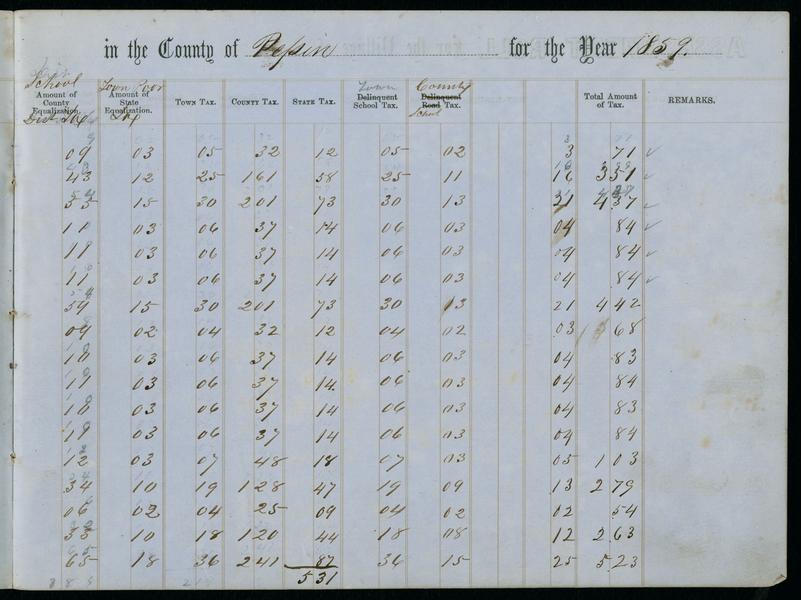 in the County of Pepin for the Year 1859.
School Town Poor Town County
Amount of County Equalization. Amount of State Equalization. Town Tax. County Tax. State Tax. Delinquent School Tax. Delinquent Road Tax. Total Amount of Tax. REMARKS.
Dist Tax Tax School
09 03 05 32 12 05 02 3 71
43 12 25 161 58 25 11 16 351
53 15 30 201 73 30 13 21 437
11 03 06 37 14 06 03 04 84
11 03 06 37 14 06 03 04 84
11 03 06 37 14 06 03 04 84
59 15 30 201 73 30 13 21 442
09 02 04 32 12 04 02 03 68
10 03 06 37 14 06 03 04 83
11 03 06 37 14 06 03 04 84
10 03 06 37 14 06 03 04 83
11 03 06 37 14 06 03 04 84
12 03 07 48 18 07 03 05 103
34 10 19 128 47 19 09 13 279
06 02 04 25 09 04 02 02 54
33 10 18 120 44 18 08 12 263
65 18 36 241 87 36 15 25 523
531